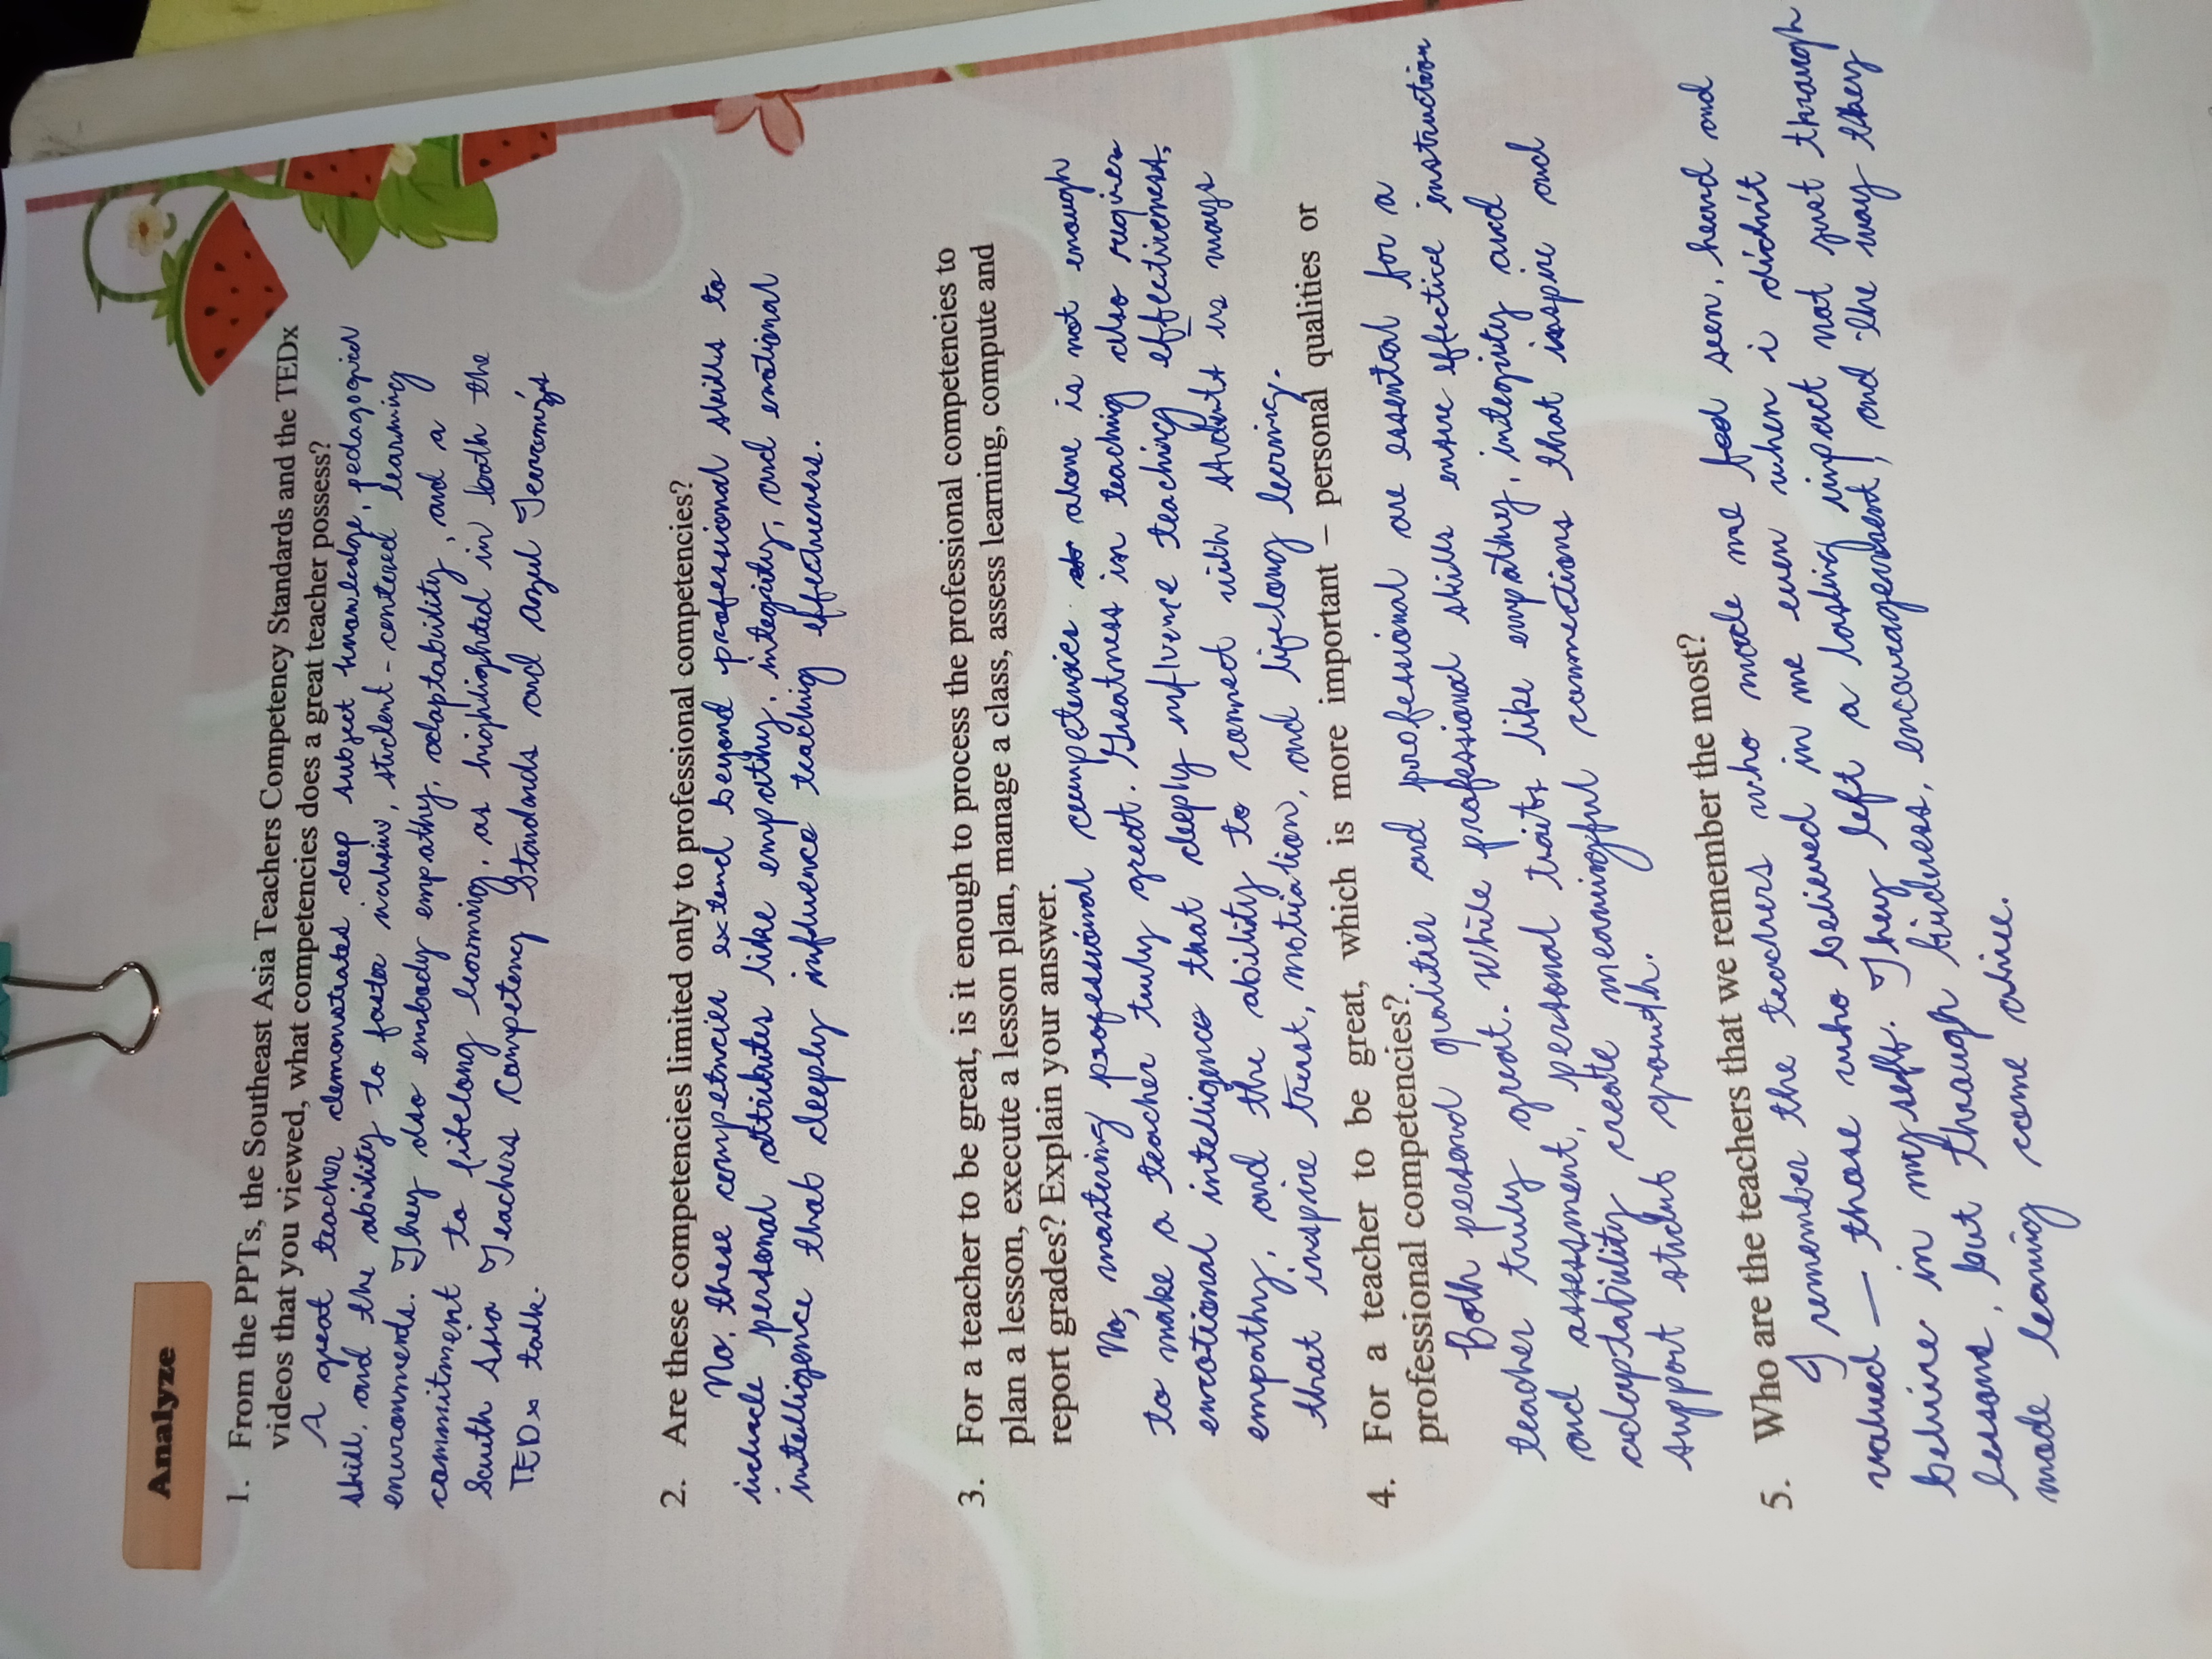 Analyze
1. From the PPTs, the Southeast Asia Teachers Competency Standards and the TEDx
videos that you viewed, what competencies does a great teacher possess?
A great teacher demonstrates deep subject knowledge, pedagogical
skill, and the ability to foster inclusive, student-centered learning
environments. They also embody empathy, adaptability, and a
commitment to lifelong learning, as highlighted in both the
South Asia Teachers Competency Standards and azul Terronez's
TEDx talk.
2. Are these competencies limited only to professional competencies?
No, these competencies extend beyond professional skills to
include personal attributes like empathy, integrity, and emotional
intelligence that deeply influence teaching effectiveness.
3. For a teacher to be great, is it enough to process the professional competencies to
plan a lesson, execute a lesson plan, manage a class, assess learning, compute and
report grades? Explain your answer.
No, mastering professional competencies alone is not enough
to make a teacher truly great. Greatness in teaching also requires
emotional intelligence that deeply influence teaching effectiveness,
empathy, and the ability to connect with students in ways
that inspire trust, motivation, and lifelong learning.
4. For a teacher to be great, which is more important – personal qualities or
professional competencies?
Both personal qualities and professional are essential for a
teacher truly great. While professional skills ensure effective instruction
and assessment, personal traits like empathy, integrity and
adaptability create meaningful connections that inspire and
support student growth.
5. Who are the teachers that we remember the most?
I remember the teachers who made me seen, heard and
valued — those who believed in me even when i didn't
believe in myself. They left a lasting impact not just through
lessons, but through kindness, encouragement, and the way they
made learning come alive.